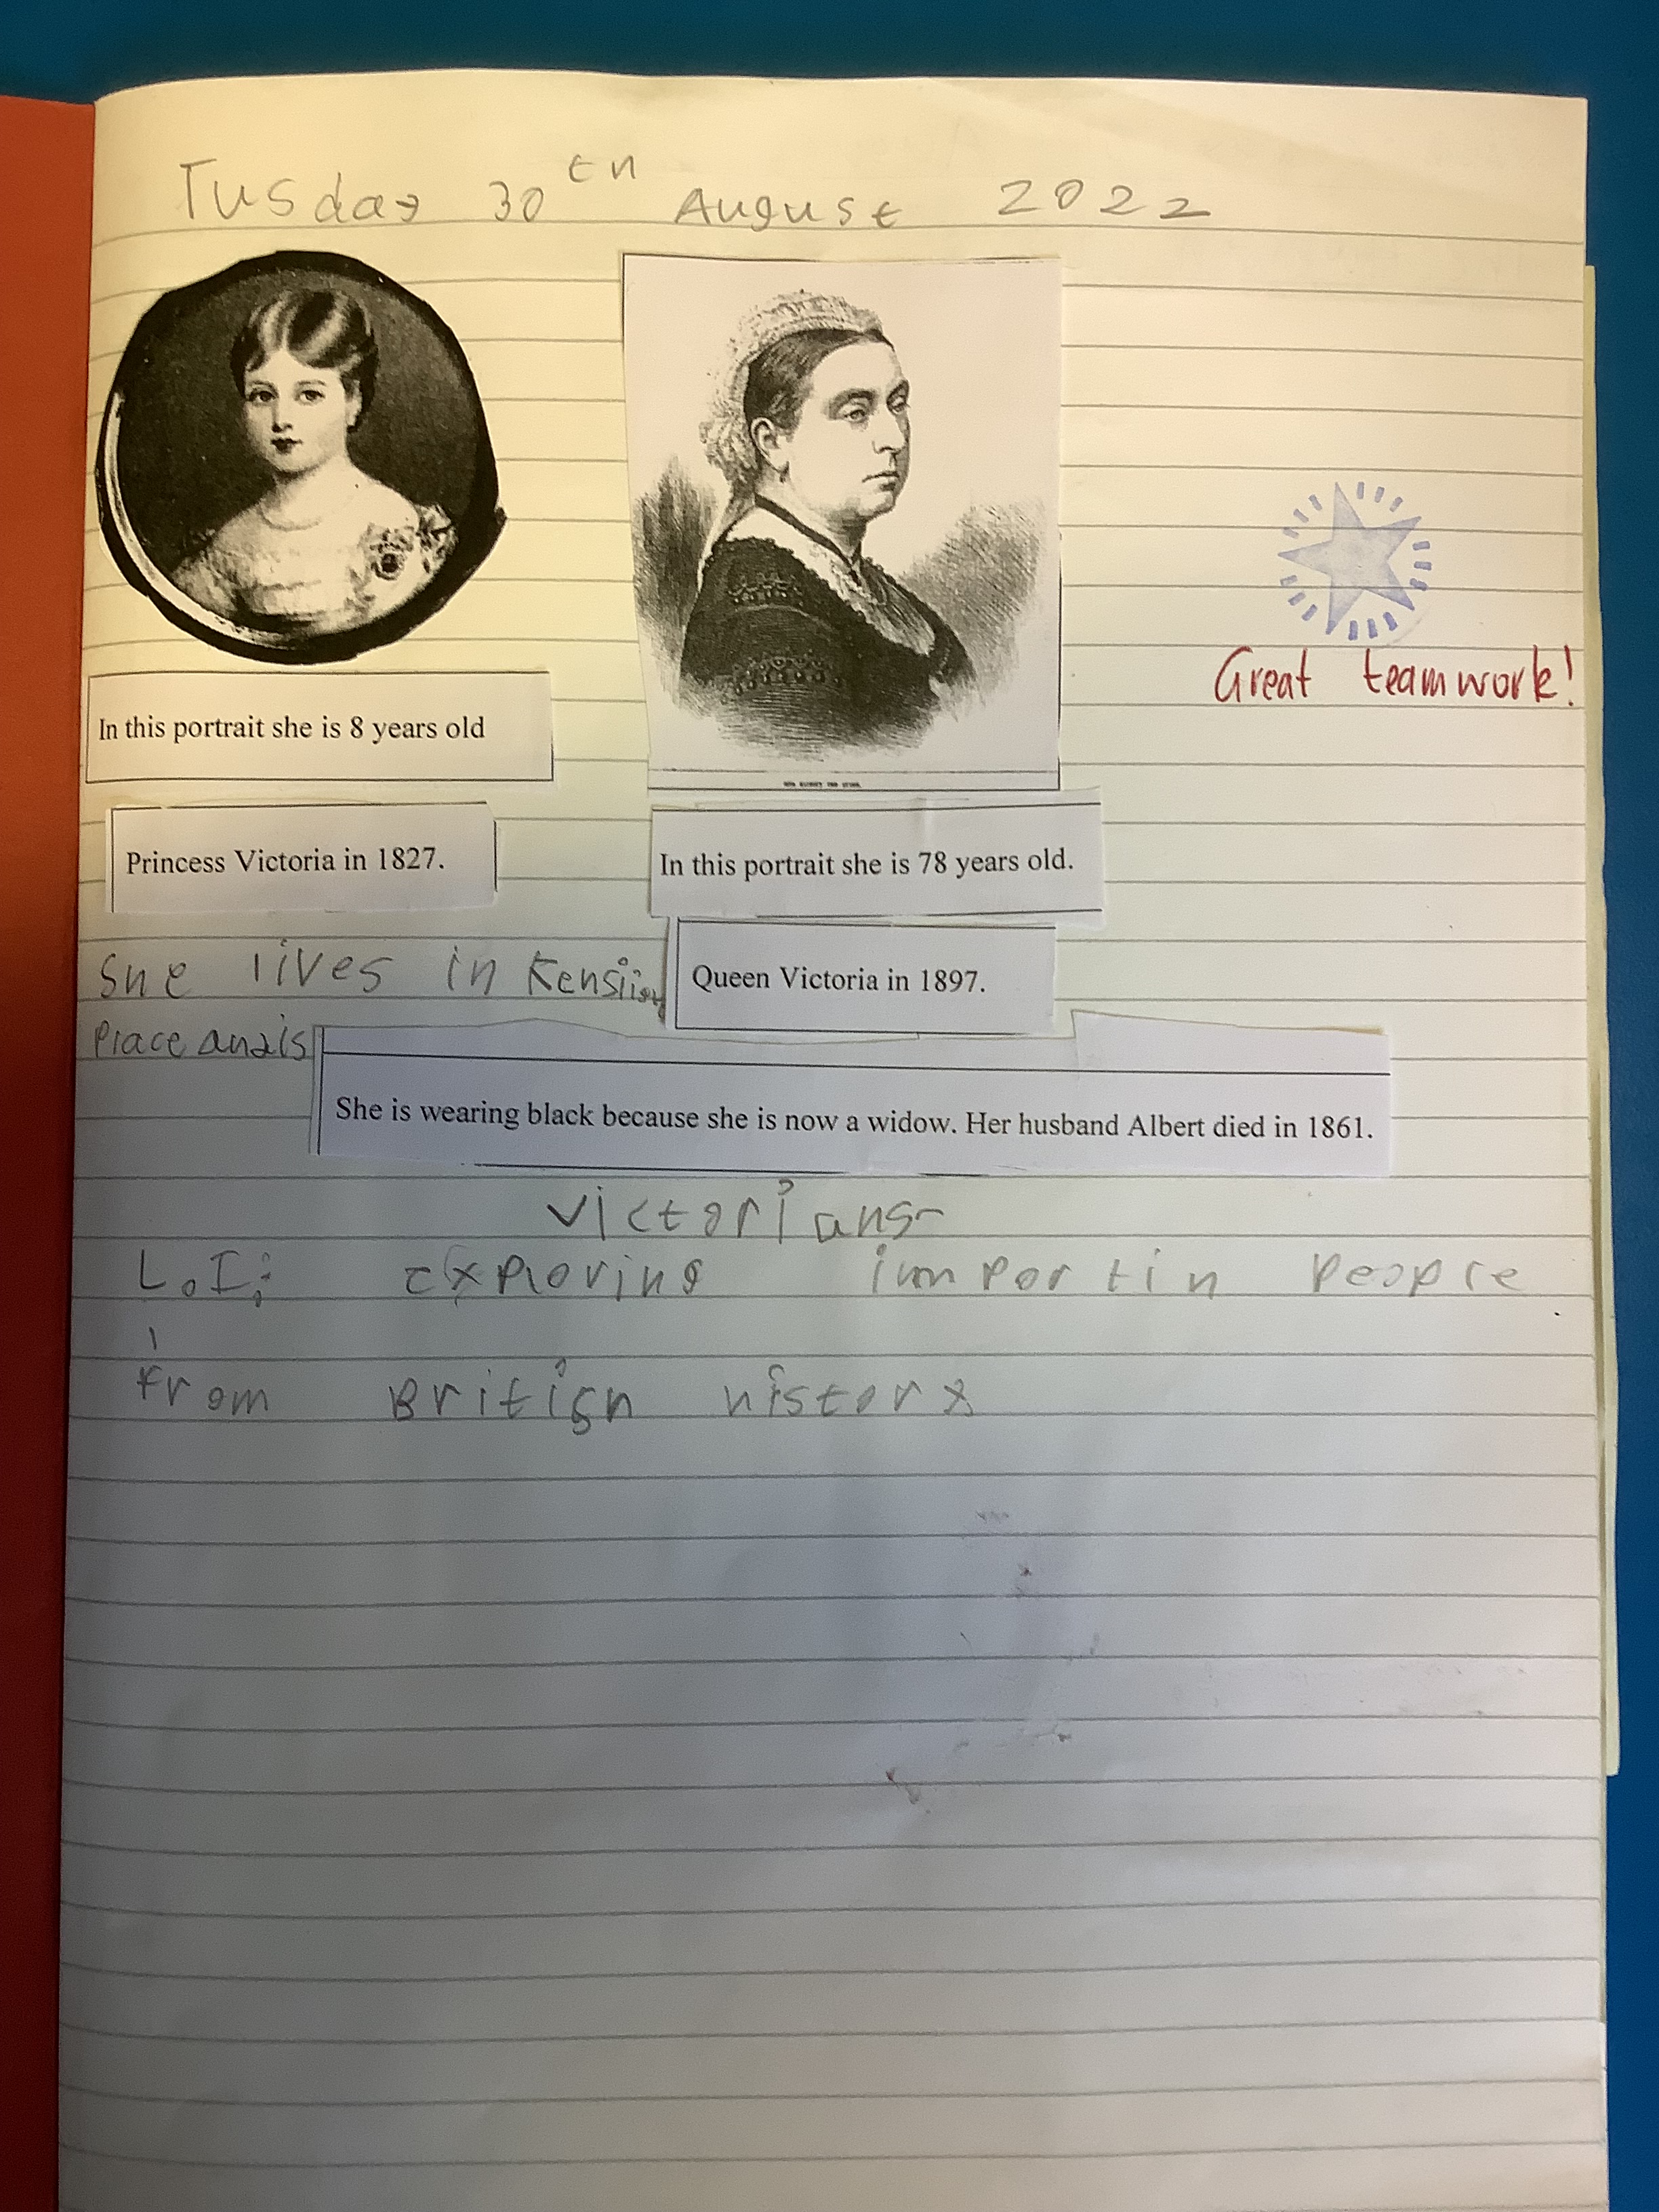 Tusday 30th August 2022
In this portrait she is 8 years old
Princess Victoria in 1827.
In this portrait she is 78 years old.
Queen Victoria in 1897.
Great teamwork!
she lives in
Place and is
She is wearing black because she is now a widow. Her husband Albert died in 1861.
Victorians
L.I: Exploring importin people
from British history